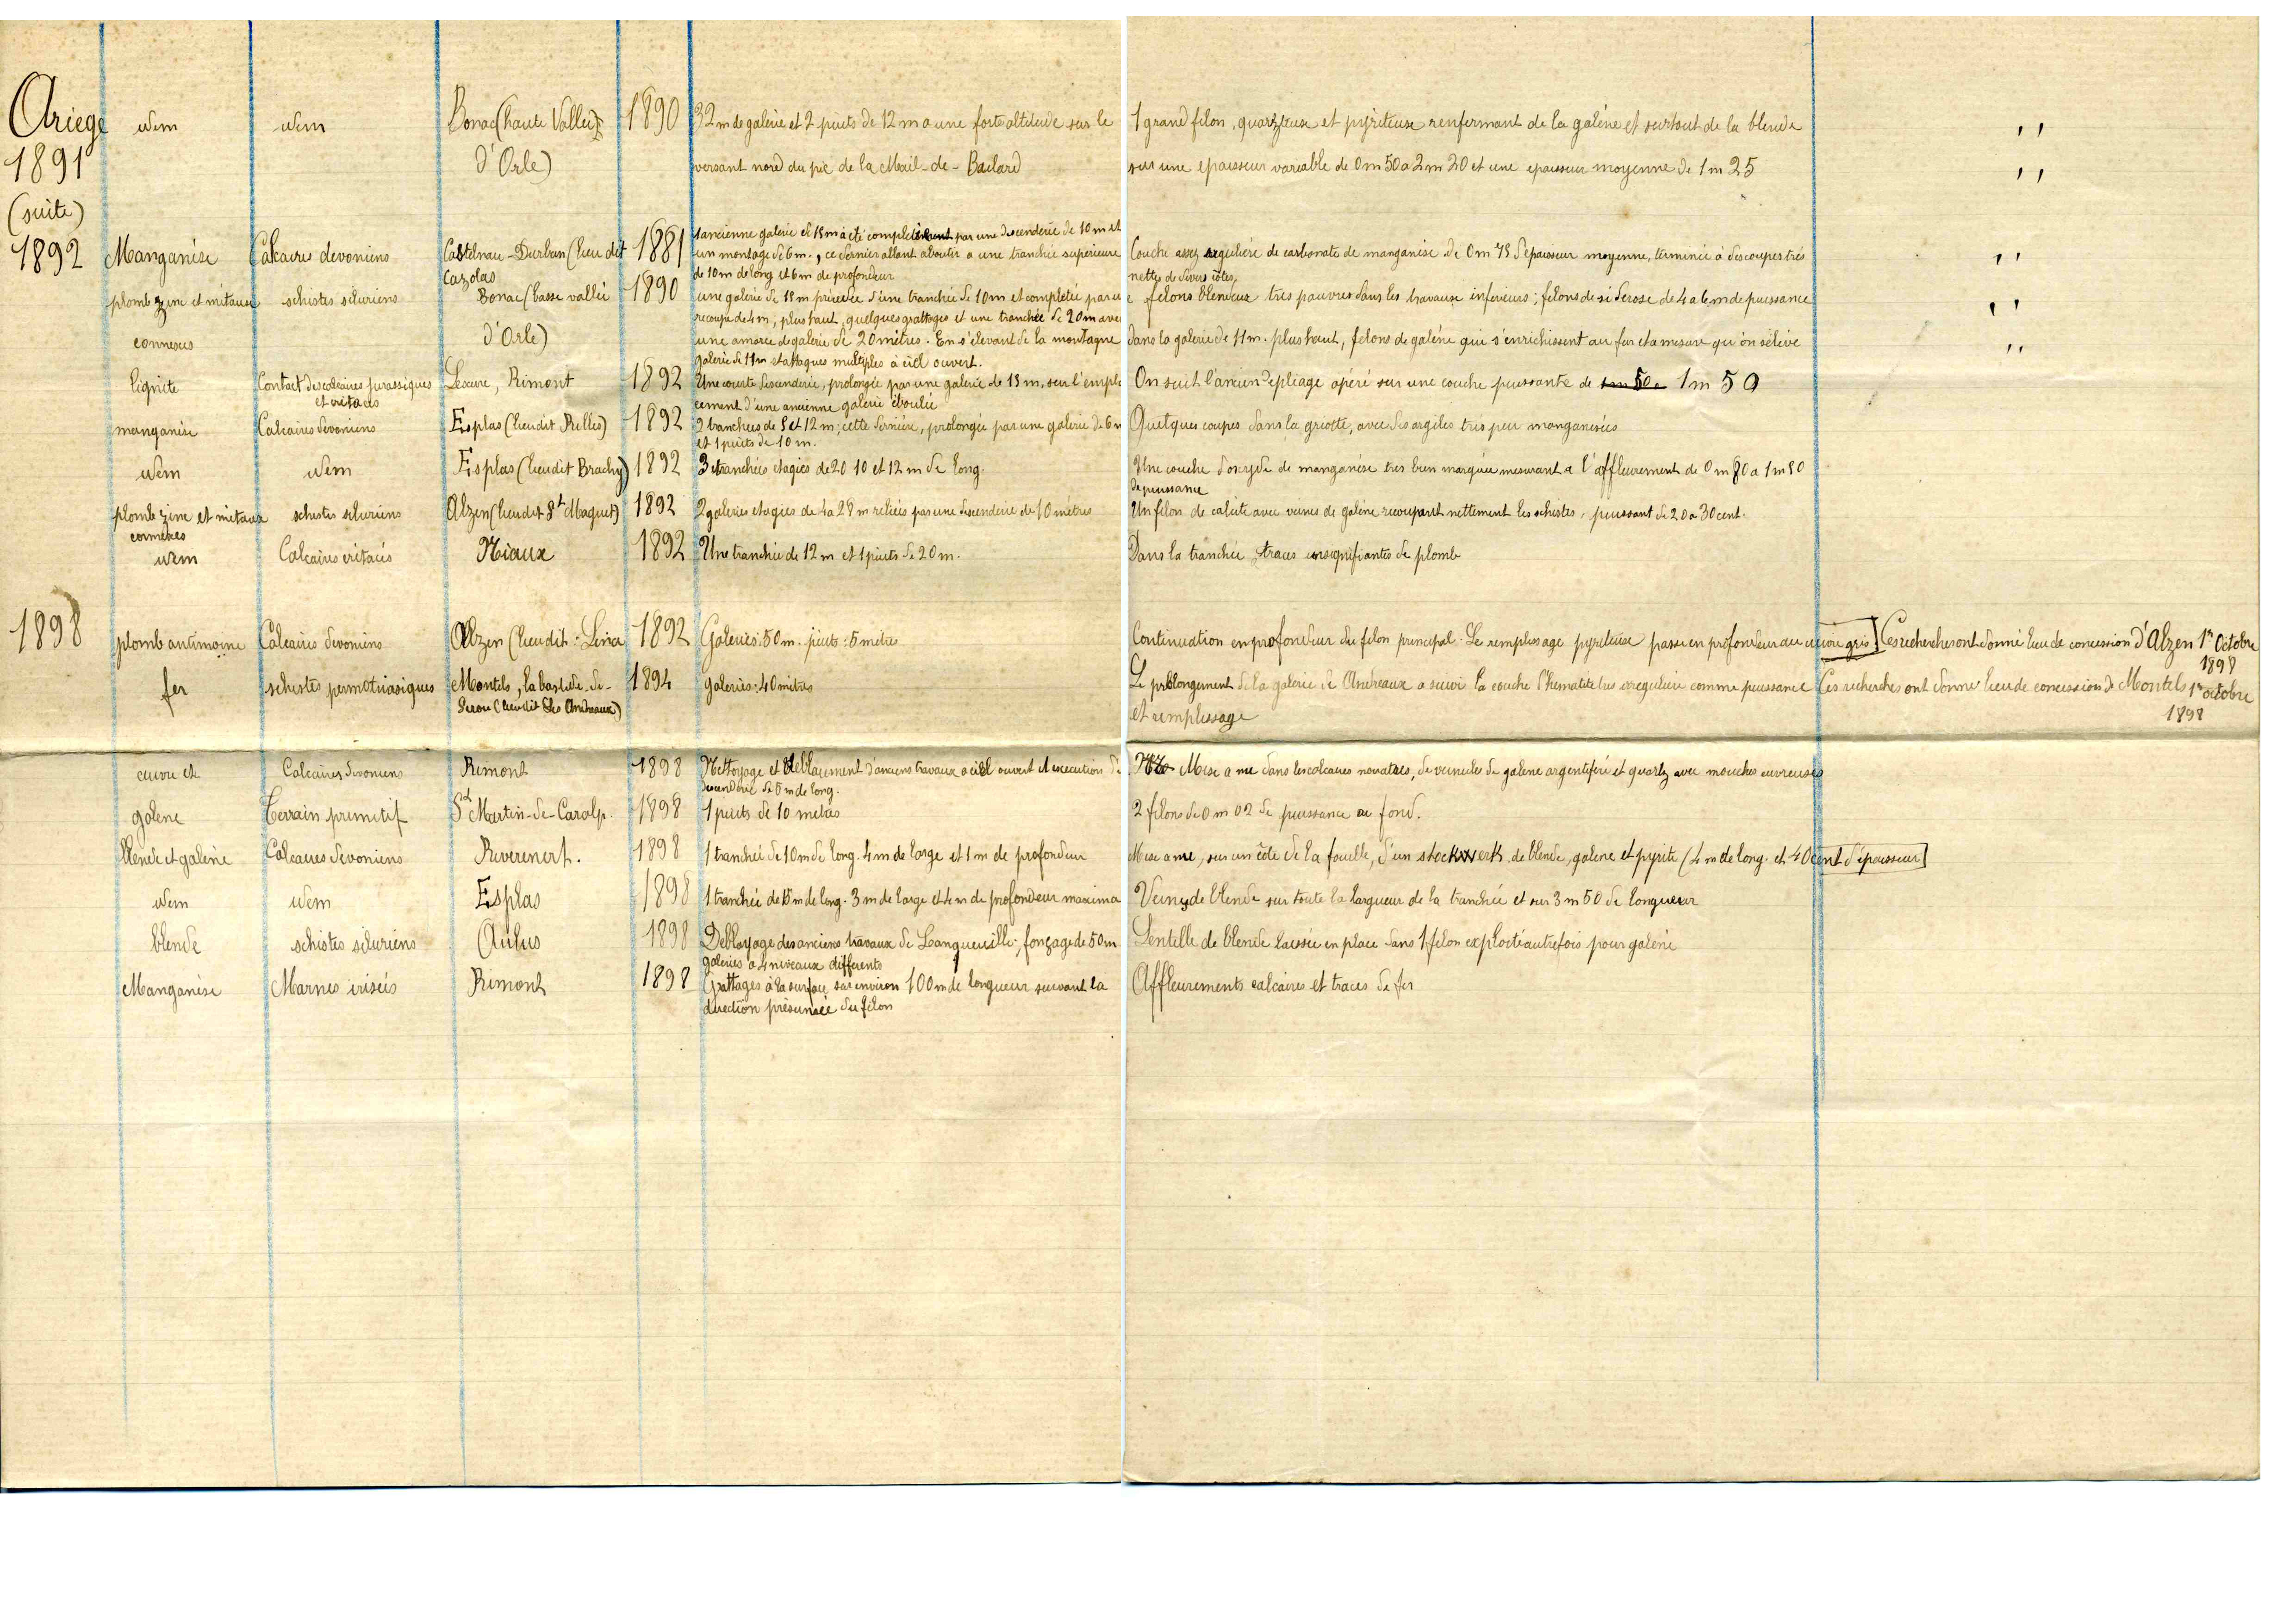 Ariège idem idem Bonac (haute Vallée 1890 32 m de galerie et 2 puits de 12 m a une forte altitude sur le 1 grand filon, quartzeux et pyriteux renfermant de la galène et surtout de la blende ''
1891 d'Orle) versant nord du pic de la Mail-de-Bulard sur une epaisseur variable de 0 m 50 a 2 m 20 et une epaisseur moyenne de 1 m 25 ''
(suite)
1 ancienne galerie de 15 m a été par une descenderie de 10 m et
1892 Manganèse Calcaires dévoniens Castelnau-Durban (lieu dit 1881 un montage de 6 m., ce dernier allant aboutir a une tranchée supérieure Couche assez régulière de carbonate de manganèse de 0 m 75 d'épaisseur moyenne, terminée à des coupes très ''
Cazolas de 10 m de long et 6 m de profondeur nettes de divers côtés
plomb zinc et métaux schistes siluriens Bonac (basse vallée 1890 une galerie de 15 m précédée d'une tranchée de 10 m et complétée par u filons blendeux très pauvres dans les travaux inférieurs; filons de siderose de 4 a 6 m de puissance ''
recoupe de 4 m, plus haut, quelques grattages et une tranchée de 20 m ave
connexes d'Orle) une amorce de galerie de 20 mètres. En s'élevant de la montagne dans la galerie de 11 m. plus haut, filons de galène qui s'enrichissent au fur et a mesure qu'on s'élève ''
galerie de 11 m et attaques multiples à ciel ouvert.
lignite Contact des calcaires jurassiques Lescure, Rimont 1892 Une courte descenderie, prolongée par une galerie de 15 m, sur l'empla On suit l'ancien dépilage opéré sur une couche puissante de 1 m 50
et crétacés cement d'une ancienne galerie éboulée
manganèse Calcaires dévoniens Esplas (lieu dit Rilles) 1892 2 tranchées de 5 et 12 m; cette dernière, prolongée par une galerie de 6 m Quelques coupes dans la griotte, avec des argiles très peu manganésées
et 1 puits de 10 m.
idem idem Esplas (lieu dit Brachy) 1892 3 tranchées etagées de 20 10 et 12 m de long. Une couche d'oxyde de manganèse très bien marquée mesurant a l'affleurement de 0 m 80 a 1 m 50
de puissance
plomb zinc et métaux schistes siluriens Alzen (lieu dit St Maguet) 1892 2 galeries etagées de 4 a 28 m reliées par une descenderie de 10 mètres Un filon de calcite avec veines de galène recoupant nettement les schistes, puissant de 20 a 30 cent.
connexes
idem Calcaires crétacés Niaux 1892 Une tranchée de 12 m et 1 puits de 20 m. Dans la tranchée, traces insignifiantes de plomb
1898 plomb antimoine Calcaires dévoniens Alzen (lieu dit: 1892 Galeries: 50 m. puits: 5 metre Continuation en profondeur du filon principal. Le remplissage pyriteux passe en profondeur au cuivre gris] Ces recherches ont donné lieu de concession d'Alzen 1er Octobre
1898
fer schistes permotriasiques Montels, la bastide-de- 1894 galeries: 40 mètres Le prolongement de la galerie de Andreaux a suivi la couche d'hematite très irregulière comme puissance Ces recherches ont donné lieu de concession de Montels 1er octobre
Serou (lieu dit Les Andreaux) et remplissage 1898
cuivre et Calcaires dévoniens Rimont 1898 Nettoyage et déblaiement d'anciens travaux a ciel ouvert et execution de Mise a nu dans les calcaires noirâtres, de veinules de galene argentifère et quartz avec mouches cuivreuses
descenderie de 5 m de long.
galène Terrain primitif St Martin-de-Caralp. 1898 1 puits de 10 metres 2 filons de 0 m 02 de puissance au fond.
blende et galène Calcaires dévoniens Riverenert. 1898 1 tranchée de 10 m de long. 4 m de large et 1 m de profondeur Mise a nu, sur un côté de la fouille, d'un stockwerk de blende, galene et pyrite (4 m de long. et 40 cent d'épaisseur]
idem idem Esplas 1898 1 tranchée de 15 m de long. 3 m de large et 4 m de profondeur maxima Veines de blende sur toute la largueur de la tranchée et sur 3 m 50 de longueur
blende schistes siluriens Aulus 1898 Déblayage des anciens travaux de Lanqueuille; fonçage de 50 m Lentille de blende laissée en place dans 1 filon exploité autrefois pour galène
galeries a 4 niveaux differents
Manganèse Marnes irisées Rimont 1898 Grattages à la surface sur environ 100 m de longueur suivant la Affleurements calcaires et traces de fer
direction présumée du filon